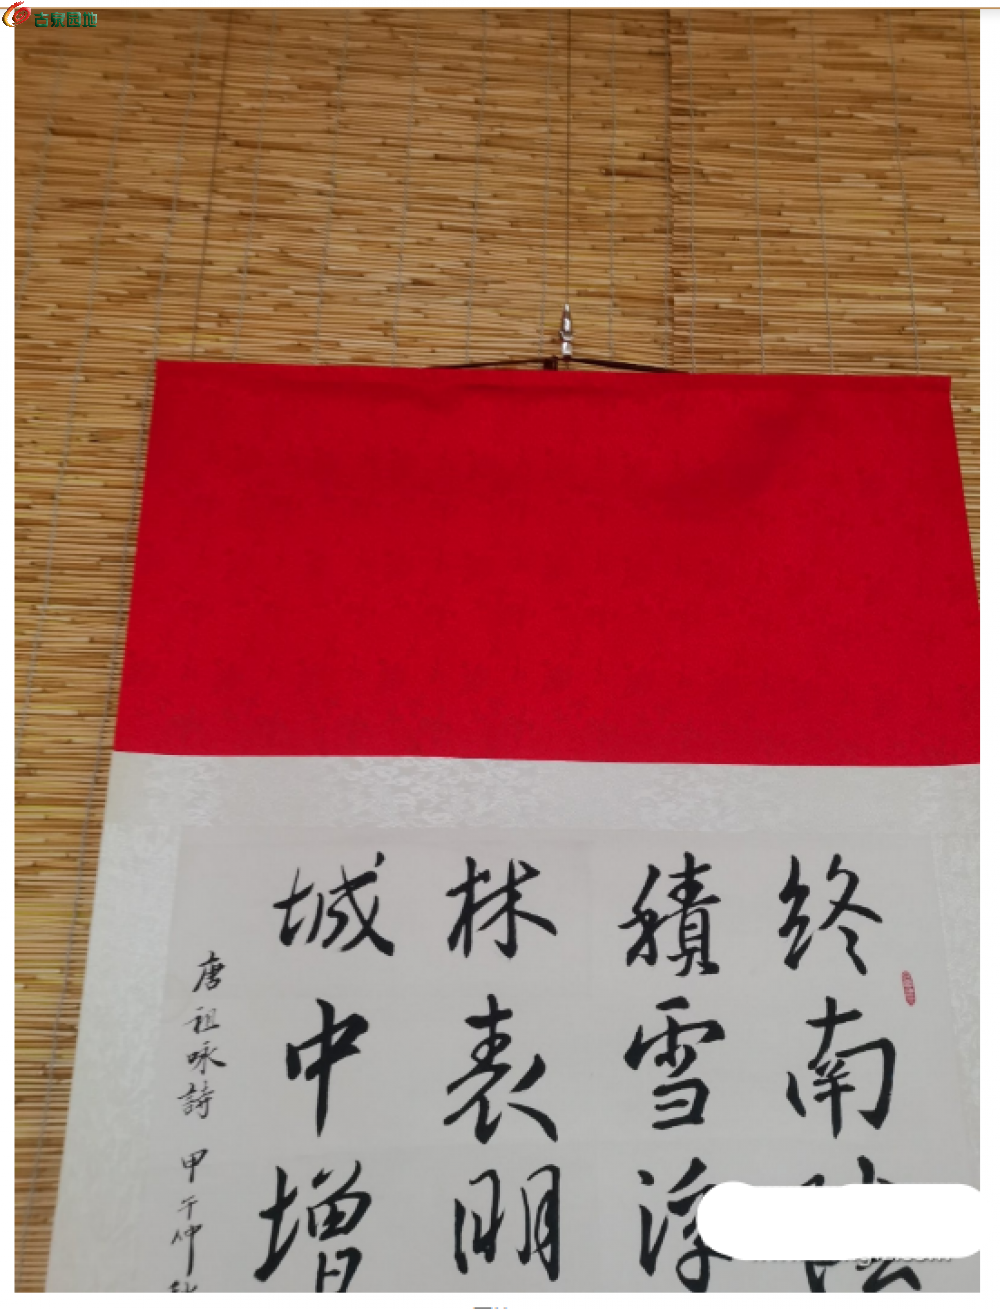 吉泉园地
终南
積雪浮
林表明
城中增
唐祖咏詩 甲午仲